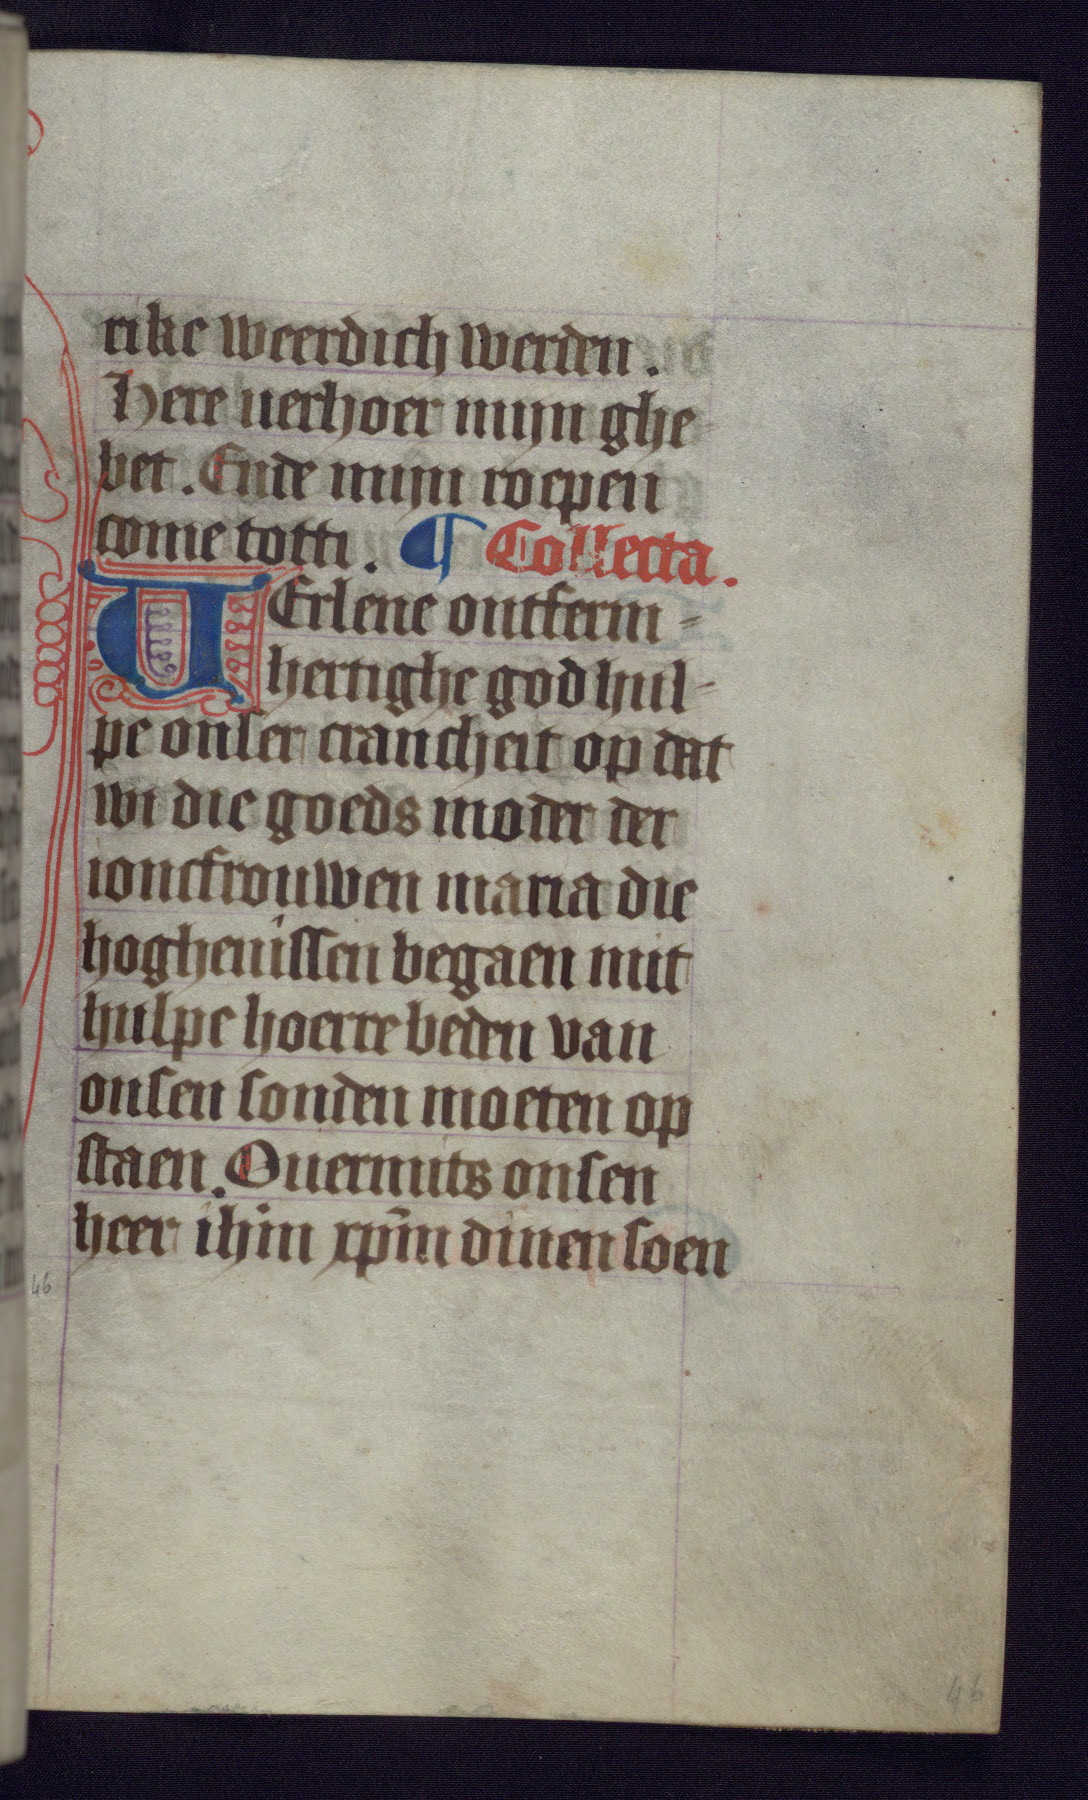 rike weerdich werden.
Here uerhoer mijn ghe
bet. Ende mijn roepen
come totti. ¶ Collecta.
VErlene ontferm-
hertighe god hul-
pe onser crancheit op dat
wi die goeds moder der
ioncfrouwen maria die
hoghenissen begaen mit
hulpe hoerre beden van
onsen sonden moeten op
staen. Ouermits onsen
heer ihm̄ xpm̄ dinen soen
46
46